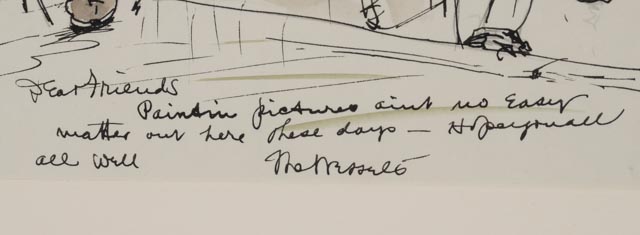 Dear Friends
Paintin pictures aint no Easy
matter out here these days — Hopeyouall
all well
The Wessels